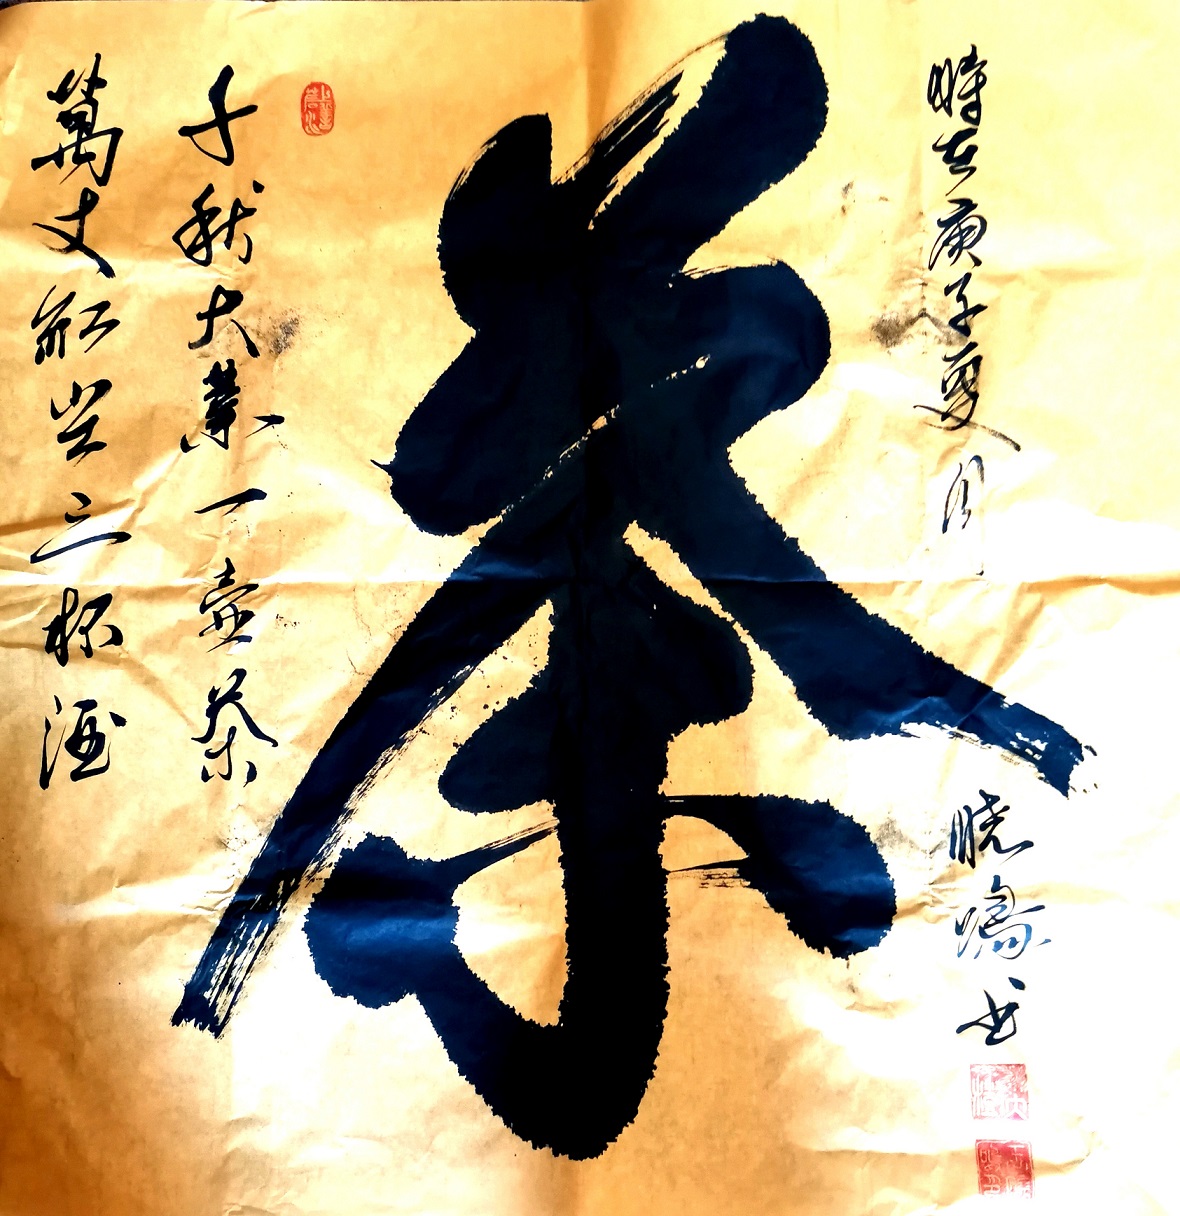 萬丈紅尘三杯酒
千秋大業一壺茶
茶
時在庚子夏月
曉鳴书